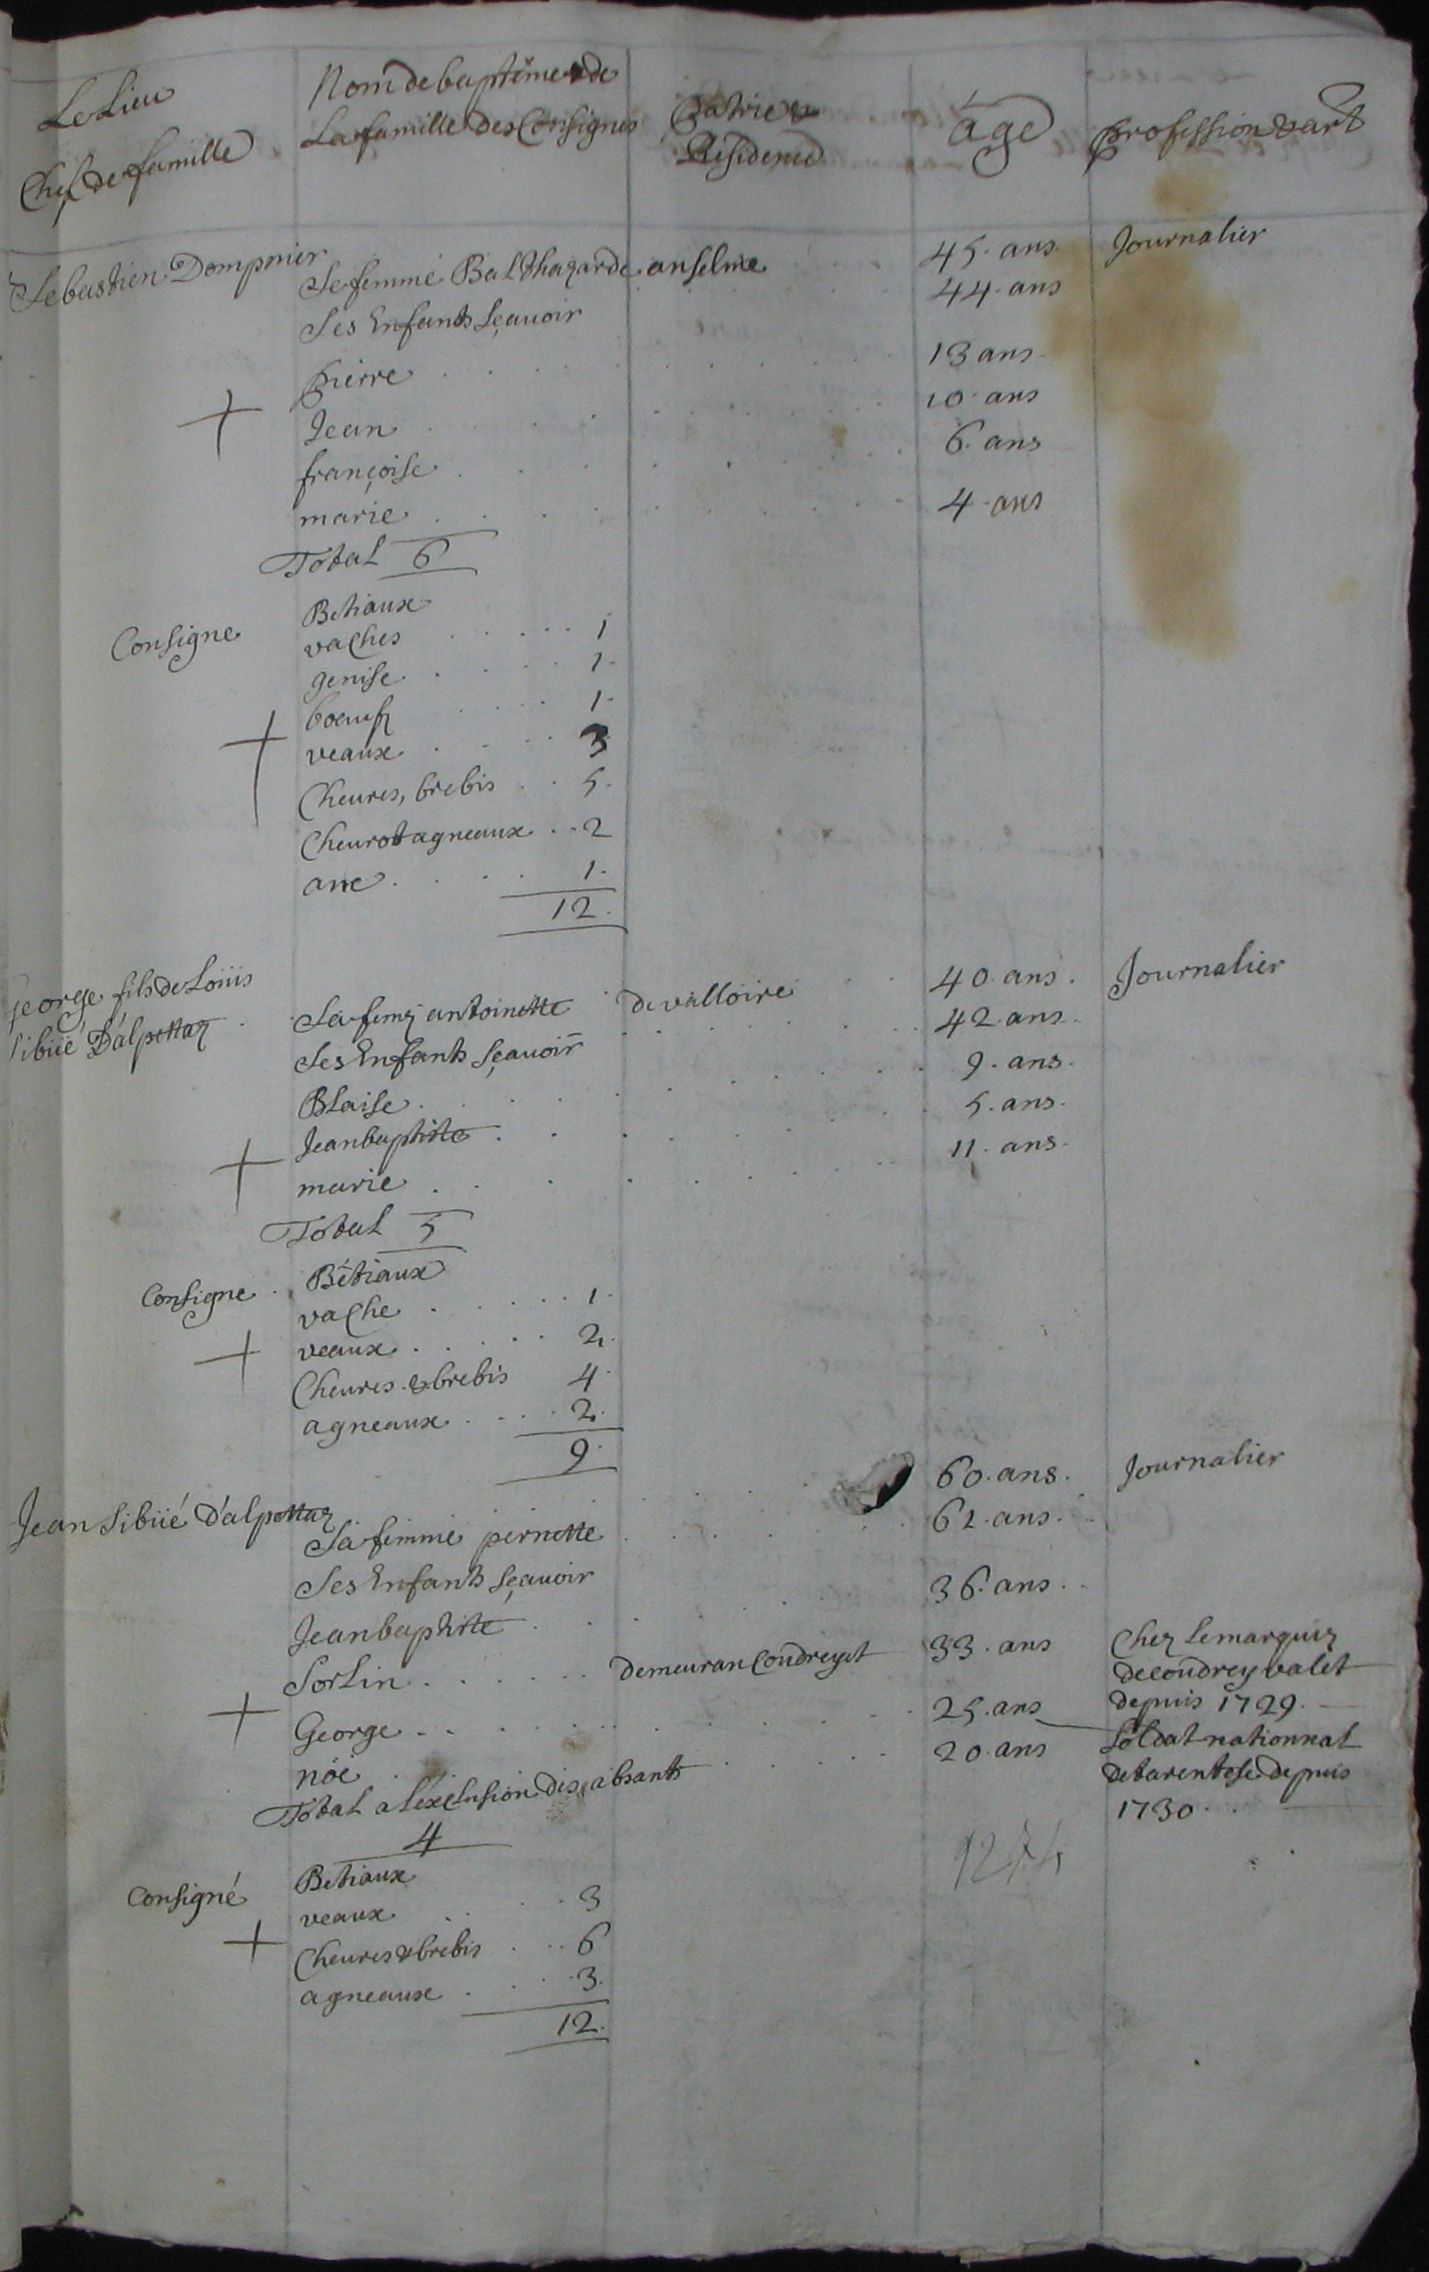 Le Lieu
Chef de famille
Nom de baptême & de
La famille des Consignés
patrie &
Residence
âge
profession & art
Sebastien Dompnier 45. ans Journalier
Se femme Balthazarde anselme 44. ans
Ses Enfants Sçauoir
pierre 13 ans
Jean 10 ans
françoise 6. ans
marie 4. ans
Total 6
Consigne Betiaux
vaches 1
genise 1.
boeufz 1.
veaux 3
Cheures, brebis 5.
Cheurot agneaux 2
ane 1.
12.
george fils de Loüis 40. ans. Journalier
Sibüé D'alpettaz
Sa femē antoinette de valloire 42. ans.
Ses Enfants Sçauoir
Blaise 9. ans.
Jeanbaptiste 5. ans.
marie 11. ans.
Total 5
Consigne Bétiaux
vache 1.
veaux 2.
Cheures & brebis 4.
agneaux 2.
9.
Jean Sibüé D'alpettaz 60. ans. Journalier
Sa femme pernette 62. ans.
Ses Enfants Sçauoir
Jeanbaptiste 36. ans.
Sorlin demeuran Coudreyet 33. ans Chez Le marquiz
de coudrey valet
depuis 1729.
George 25. ans Soldat nationnal
de tarentese depuis
1730.
nöé 20. ans
Total a L'exclusion des absants
4
Consigné Betiaux
veaux 3
Cheures & brebis 6
agneaux 3.
12.